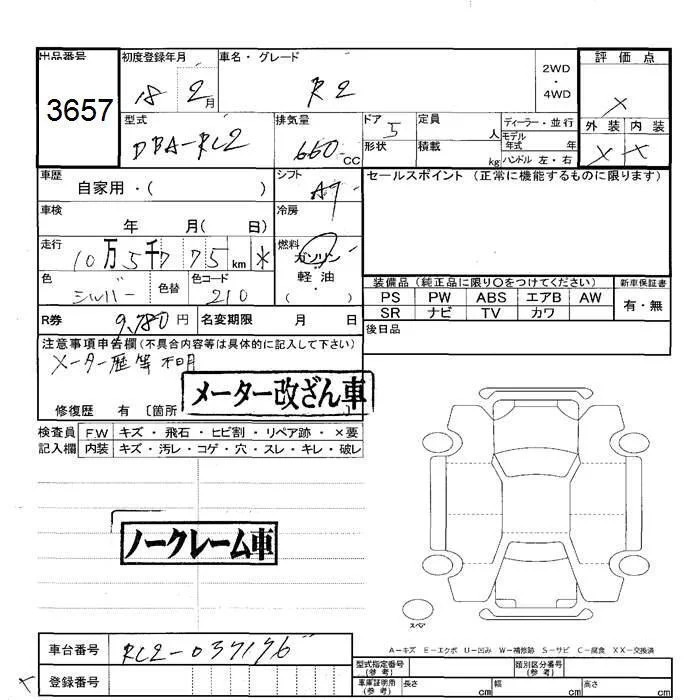 出品番号 初度登録年月 車名・グレード 評価点
3657 18 2月 R2 2WD・4WD ×
型式 排気量 ドア 定員 ディーラー・並行 外装 内装
DBA-RC2 660 CC 5 人 モデル年式 年 × ×
形状 積載 kg ハンドル 左・右
車歴 シフト セールスポイント (正常に機能するものに限ります)
自家用・( ) AT
車検 冷房
年 月( 日)
走行 燃料
10万5千775 km * ガソリン
色 色替 色コード 軽油
シルバー 210 ( )
装備品 (純正品に限り〇をつけてください) 新車保証書
PS PW ABS エアB AW 有・無
SR ナビ TV カワ
R券 9,780円 名変期限 月 日 後日品
注意事項申告欄(不具合内容等は具体的に記入して下さい)
メーター歴等不明
メーター改ざん車
修復歴 有 〔箇所
検査員 F.W キズ・飛石・ヒビ割・リペア跡・×要
記入欄 内装 キズ・汚レ・コゲ・穴・スレ・キレ・破レ
ノークレーム車
スペア
A-キズ E-エクボ U-凹み W-補修跡 S-サビ C-腐食 XX-交換済
車台番号 RC2-037176
型式指定番号(参考) 類別区分番号(参考)
× 登録番号
車庫証明用(参考) 長さ cm 幅 cm 高さ cm